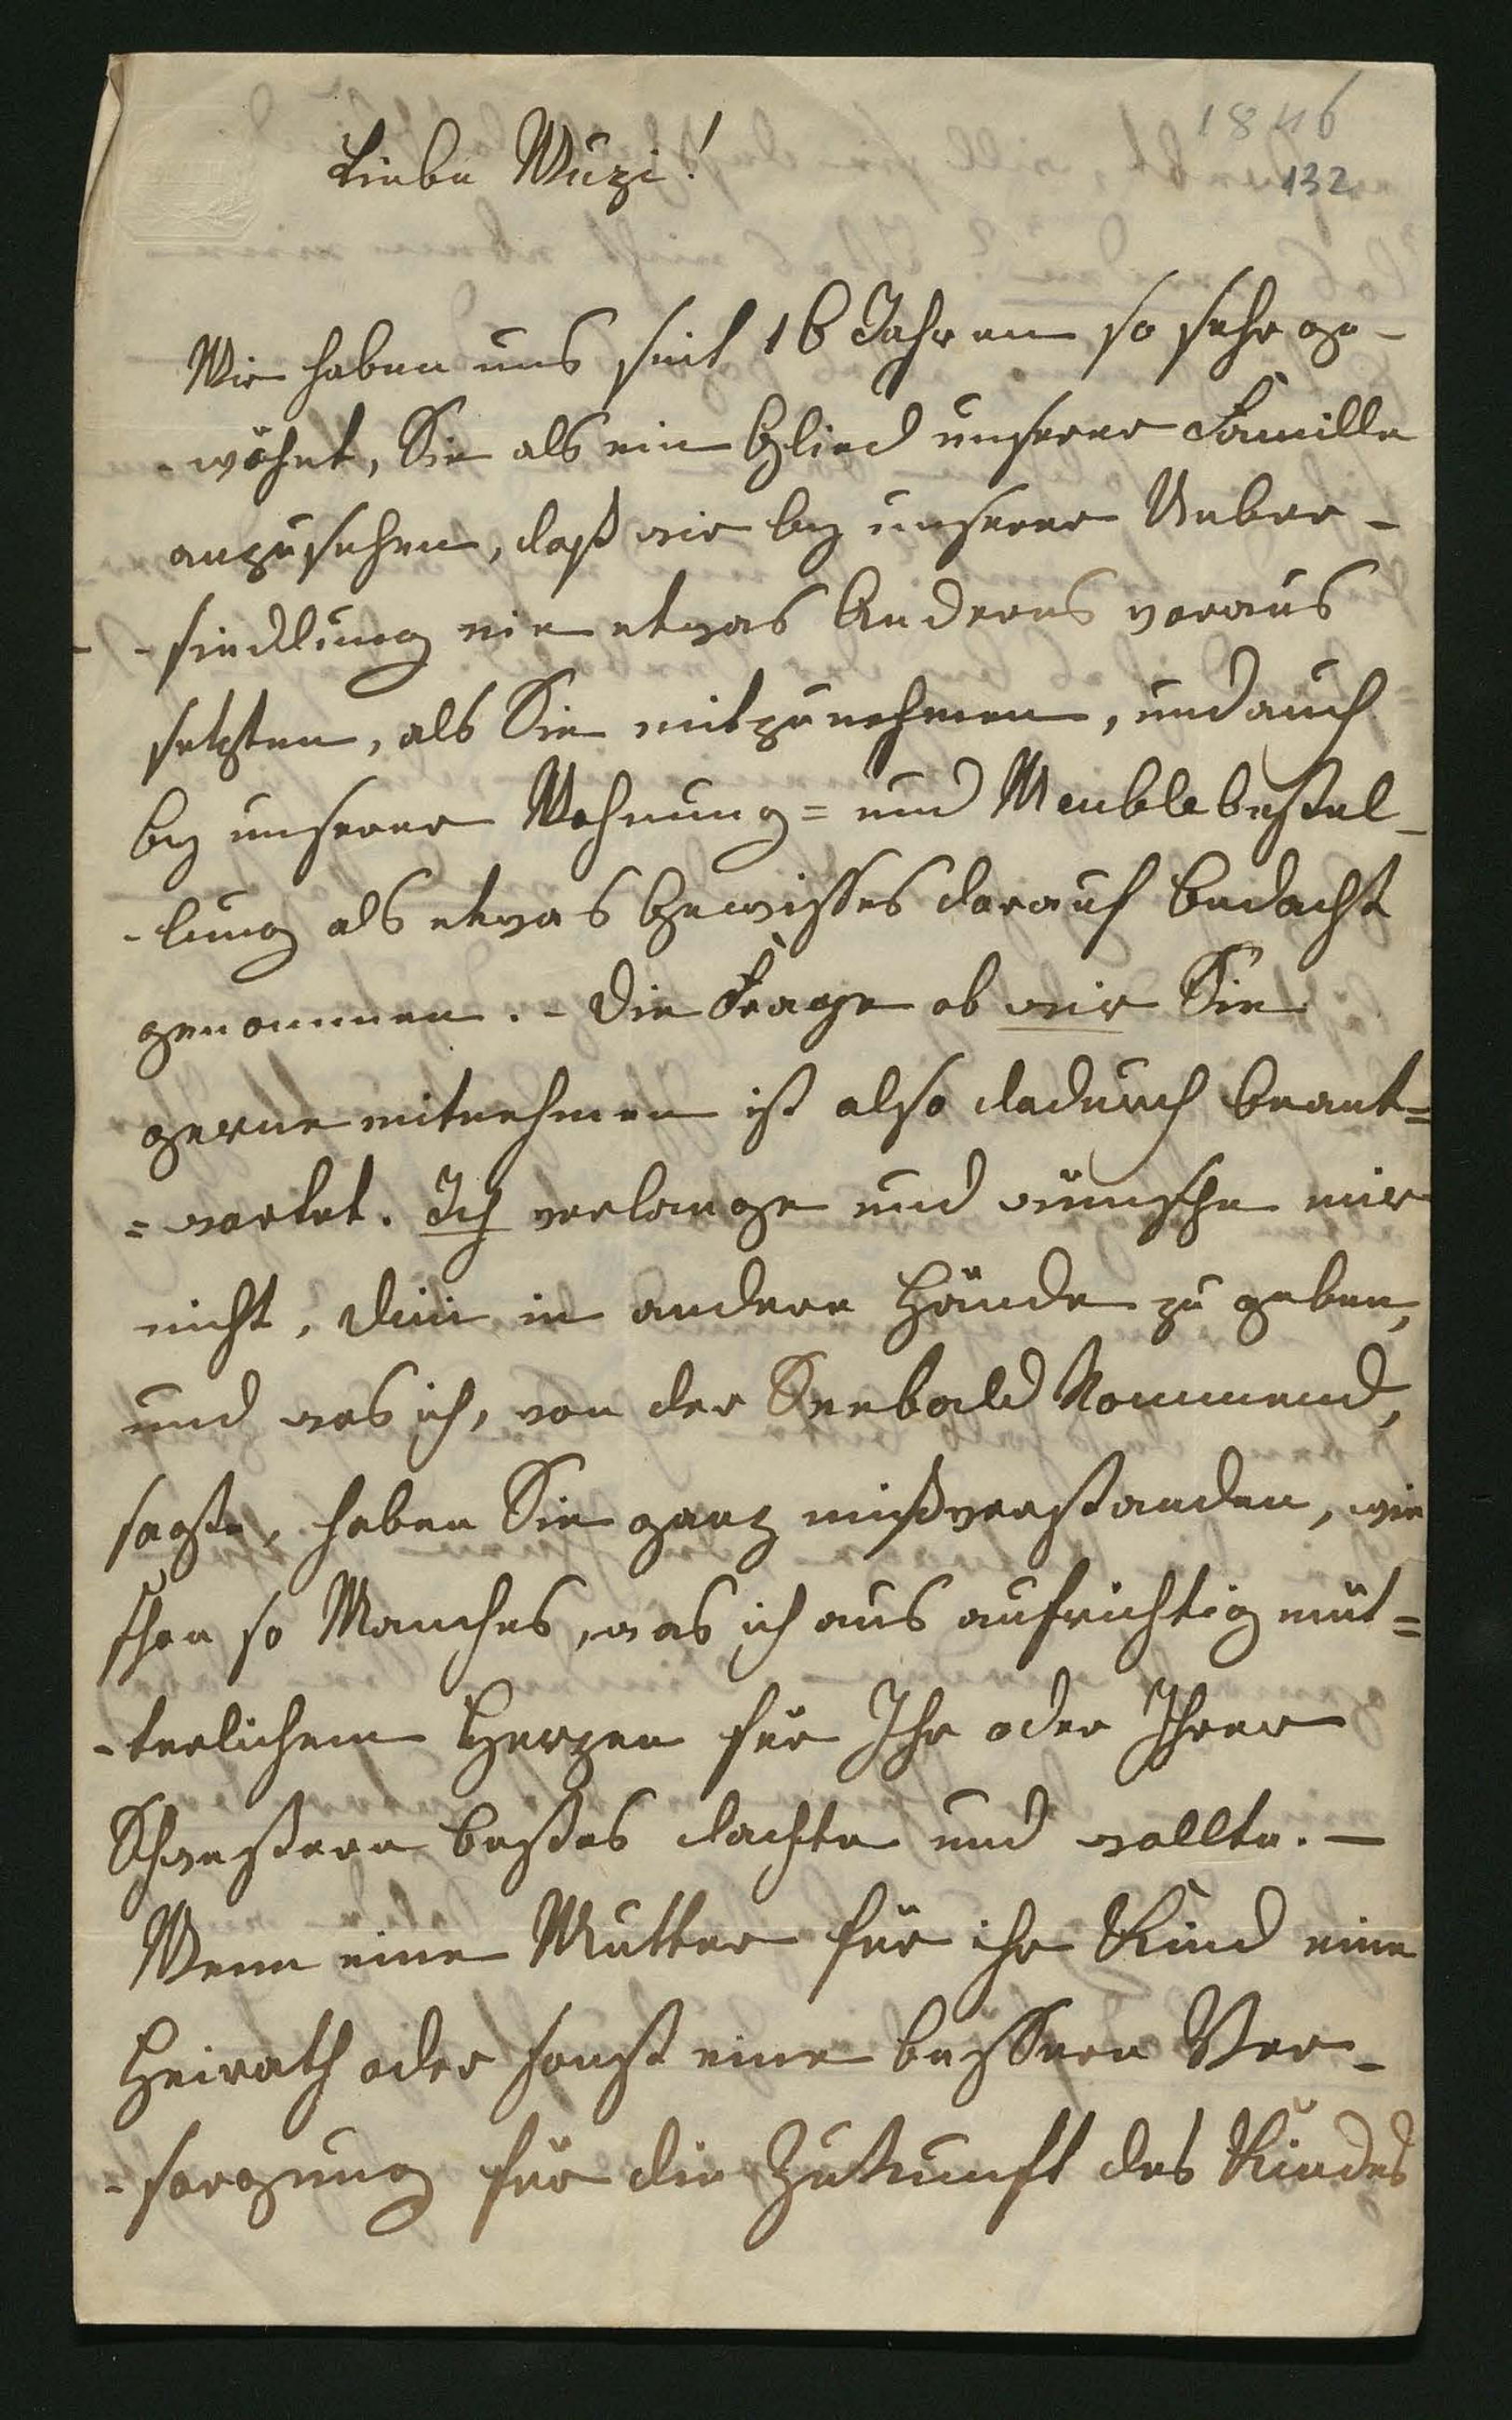 1846
132
Liebe Muzi!
Wir haben uns seit 16 Jahren so sehr ge-
-wöhnt, Sie als ein Glied unserer Familie
anzusehen, daß wir bey unserer Ueber-
-siedlung nie etwas Anderes voraus
setzten, als Sie mitzunehmen, und auch
bey unserer Wohnung= und Meublebestel-
-lung als etwas Gewisses darauf Bedacht
genommen. - Die Frage ob wir Sie
gerne mitnehmen ist also dadurch beant=
=wortet. Ich verlange und wünsche mir
nicht, in andere Hände zu geben,
und was ich, von der Seebald kommend,
sagte, haben Sie ganz mißverstanden, wie
schon so Manches, was ich aus aufrichtig müt=
-terlichem Herzen für Ihr oder Ihrer
Schwestern bestes dachte und wollte. —
Wenn eine Mutter für ihr Kind eine
Heirath oder sonst eine bessere Ver-
-sorgung für die Zukunft des Kindes